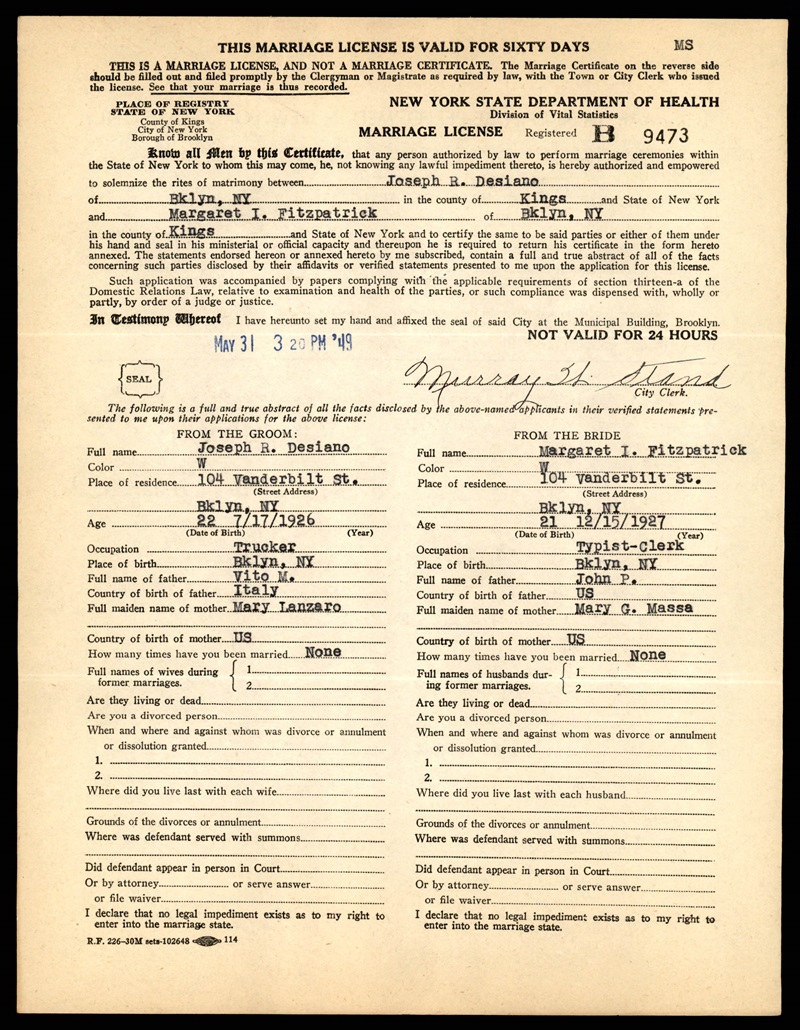 THIS MARRIAGE LICENSE IS VALID FOR SIXTY DAYS MS
THIS IS A MARRIAGE LICENSE, AND NOT A MARRIAGE CERTIFICATE. The Marriage Certificate on the reverse side
should be filled out and filed promptly by the Clergyman or Magistrate as required by law, with the Town or City Clerk who issued
the license. See that your marriage is thus recorded.
PLACE OF REGISTRY
STATE OF NEW YORK
County of Kings
City of New York
Borough of Brooklyn
NEW YORK STATE DEPARTMENT OF HEALTH
Division of Vital Statistics
MARRIAGE LICENSE Registered B 9473
Know all Men by this Certificate, that any person authorized by law to perform marriage ceremonies within
the State of New York to whom this may come, he, not knowing any lawful impediment thereto, is hereby authorized and empowered
to solemnize the rites of matrimony between Joseph R. Desiano
of Bklyn, NY in the county of Kings and State of New York
and Margaret I. Fitzpatrick of Bklyn, NY
in the county of Kings and State of New York and to certify the same to be said parties or either of them under
his hand and seal in his ministerial or official capacity and thereupon he is required to return his certificate in the form hereto
annexed. The statements endorsed hereon or annexed hereto by me subscribed, contain a full and true abstract of all of the facts
concerning such parties disclosed by their affidavits or verified statements presented to me upon the application for this license.
Such application was accompanied by papers complying with the applicable requirements of section thirteen-a of the
Domestic Relations Law, relative to examination and health of the parties, or such compliance was dispensed with, wholly or
partly, by order of a judge or justice.
In Testimony Whereof I have hereunto set my hand and affixed the seal of said City at the Municipal Building, Brooklyn.
NOT VALID FOR 24 HOURS
MAY 31 3 20 PM '49
SEAL
Murray W. Stand
City Clerk.
The following is a full and true abstract of all the facts disclosed by the above-named applicants in their verified statements pre-
sented to me upon their applications for the above license:
FROM THE GROOM:
Full name Joseph R. Desiano
Color W
Place of residence 104 Vanderbilt St.
(Street Address)
Bklyn, NY
Age 22 7/17/1926
(Date of Birth) (Year)
Occupation Trucker
Place of birth Bklyn, NY
Full name of father Vito M.
Country of birth of father Italy
Full maiden name of mother Mary Lanzaro
Country of birth of mother US
How many times have you been married None
Full names of wives during
former marriages.
1
2
Are they living or dead
Are you a divorced person
When and where and against whom was divorce or annulment
or dissolution granted
1.
2.
Where did you live last with each wife
Grounds of the divorces or annulment
Where was defendant served with summons
Did defendant appear in person in Court
Or by attorney or serve answer
or file waiver
I declare that no legal impediment exists as to my right to
enter into the marriage state.
R.F. 226-30M sets-102648 114
FROM THE BRIDE
Full name Margaret I. Fitzpatrick
Color W
Place of residence 104 Vanderbilt St.
(Street Address)
Bklyn, NY
Age 21 12/15/1927
(Date of Birth) (Year)
Occupation Typist-Clerk
Place of birth Bklyn, NY
Full name of father John P.
Country of birth of father US
Full maiden name of mother Mary G. Massa
Country of birth of mother US
How many times have you been married None
Full names of husbands dur-
ing former marriages.
1
2
Are they living or dead
Are you a divorced person
When and where and against whom was divorce or annulment
or dissolution granted
1.
2.
Where did you live last with each husband
Grounds of the divorces or annulment
Where was defendant served with summons
Did defendant appear in person in Court
Or by attorney or serve answer
or file waiver
I declare that no legal impediment exists as to my right to
enter into the marriage state.